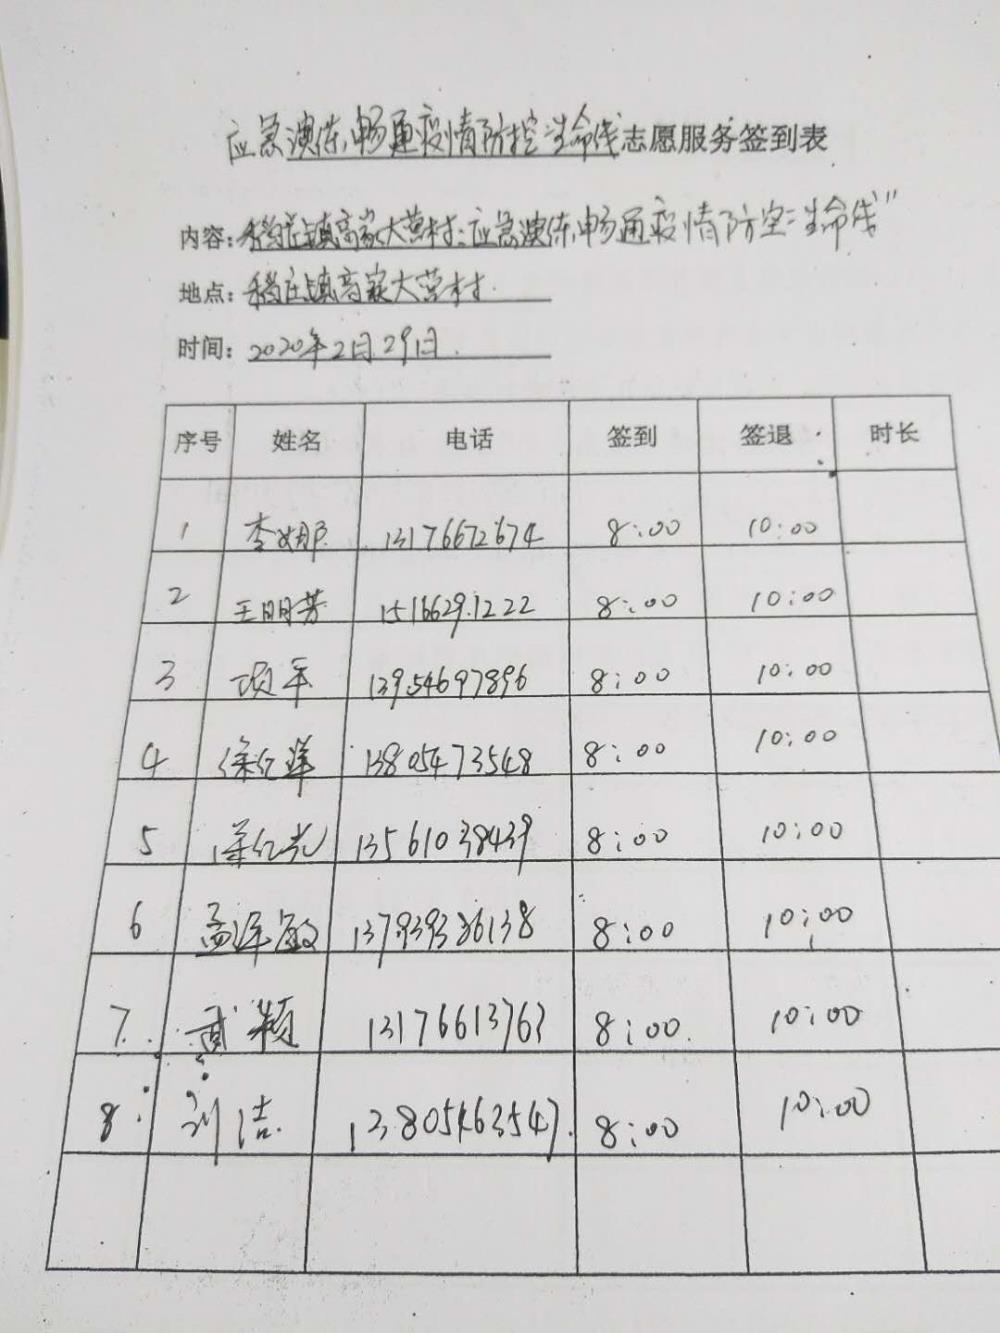 应急演练,畅通疫情防控生命线志愿服务签到表
内容:稻庄镇高家大营村:应急演练,畅通疫情防空生命线”
地点:稻庄镇高家大营村.
时间:2020年2月29日.
序号 姓名 电话 签到 签退 时长
1 李娜 13176672674 8:00 10:00
2 王明芳 15166291222 8:00 10:00
3 项军 13954697896 8:00 10:00
4 徐红 13805473548 8:00 10:00
5 13561038439 8:00 10:00
6 孟泽敏 13793936138 8:00 10:00
7. 武颖 13176613763 8:00 10:00
8. 刘洁 13805463547 8:00 10:00